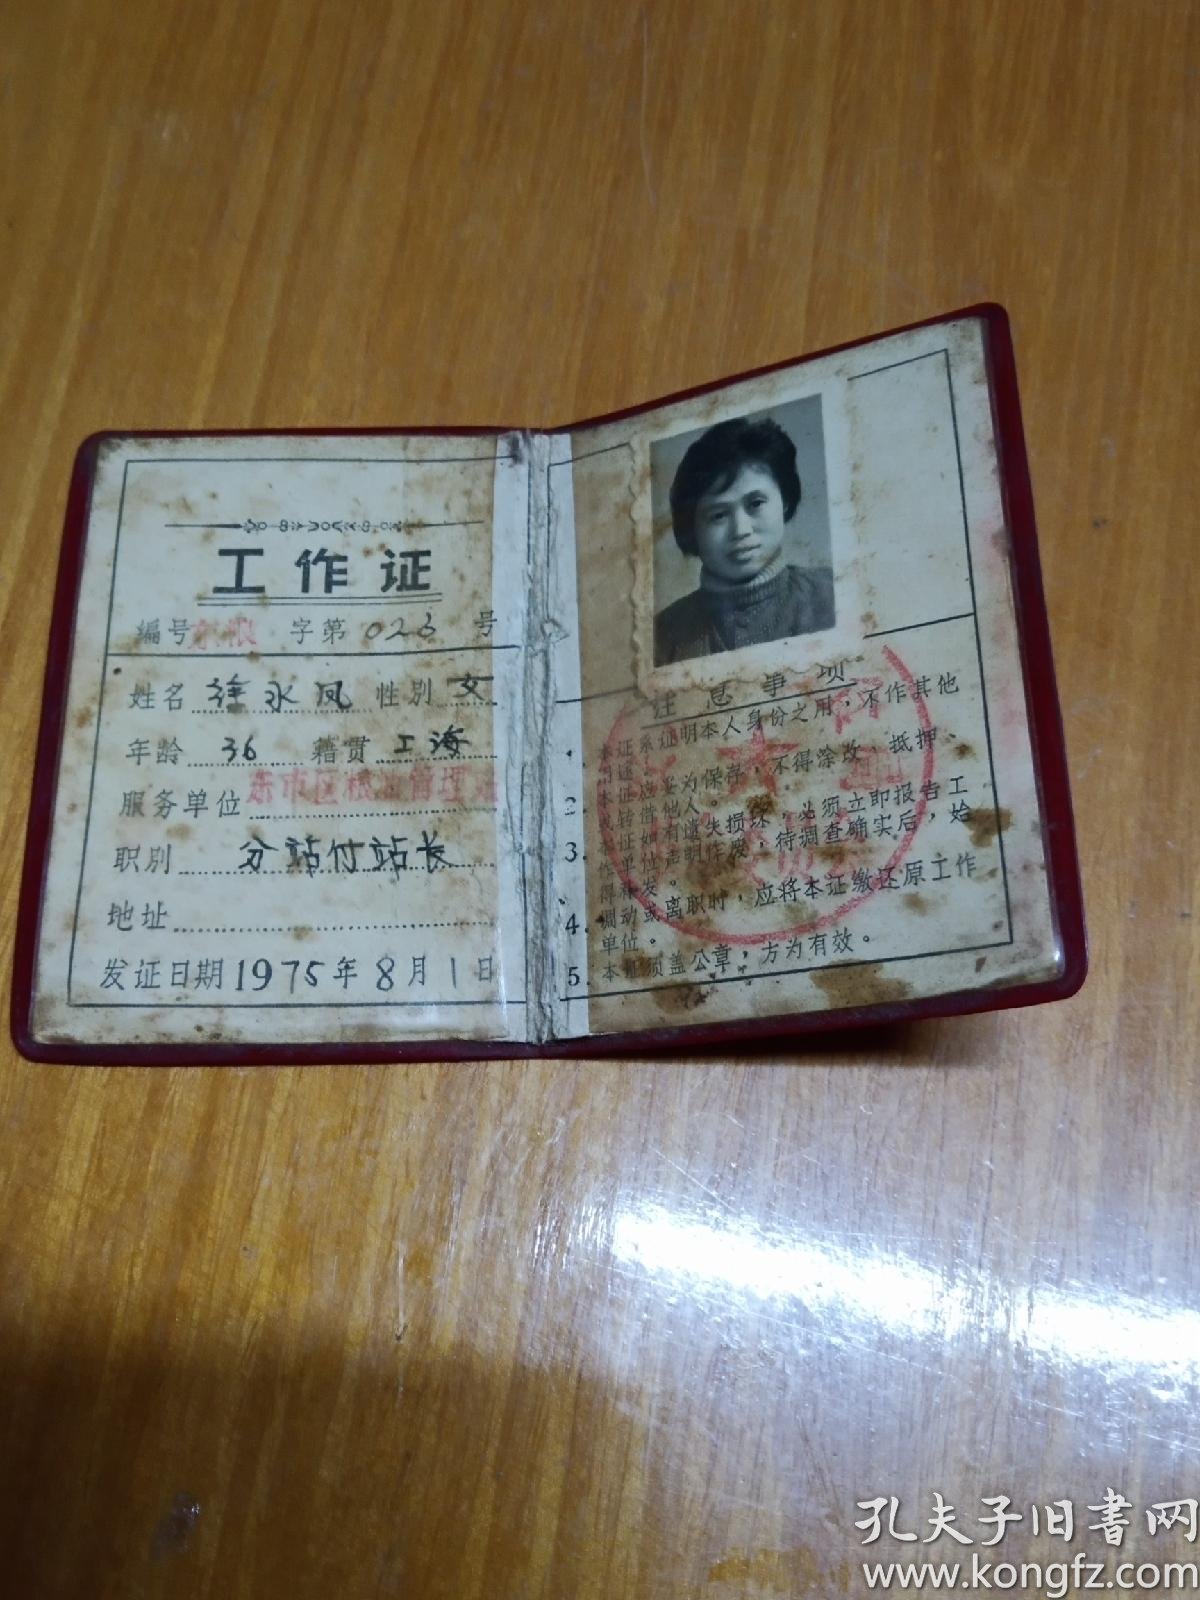 工作证
编号东粮字第026号
姓名 徐永凤 性别 女
年龄 36 籍贯 上海
服务单位 东市区粮油管理
职别 分站付站长
地址
发证日期1975年8月1日
注意事项
本证系证明本人身份之用，不作其他
妥为保存，不得涂改、抵押、
或转借他人。
3. 如有遗失损坏，必须立即报告工
作单位声明作废，待调查确实后，始
得补发。
4. 调动或离职时，应将本证缴还原工作
单位。
5. 本证须盖公章，方为有效。
孔夫子旧书网
www.kongfz.com